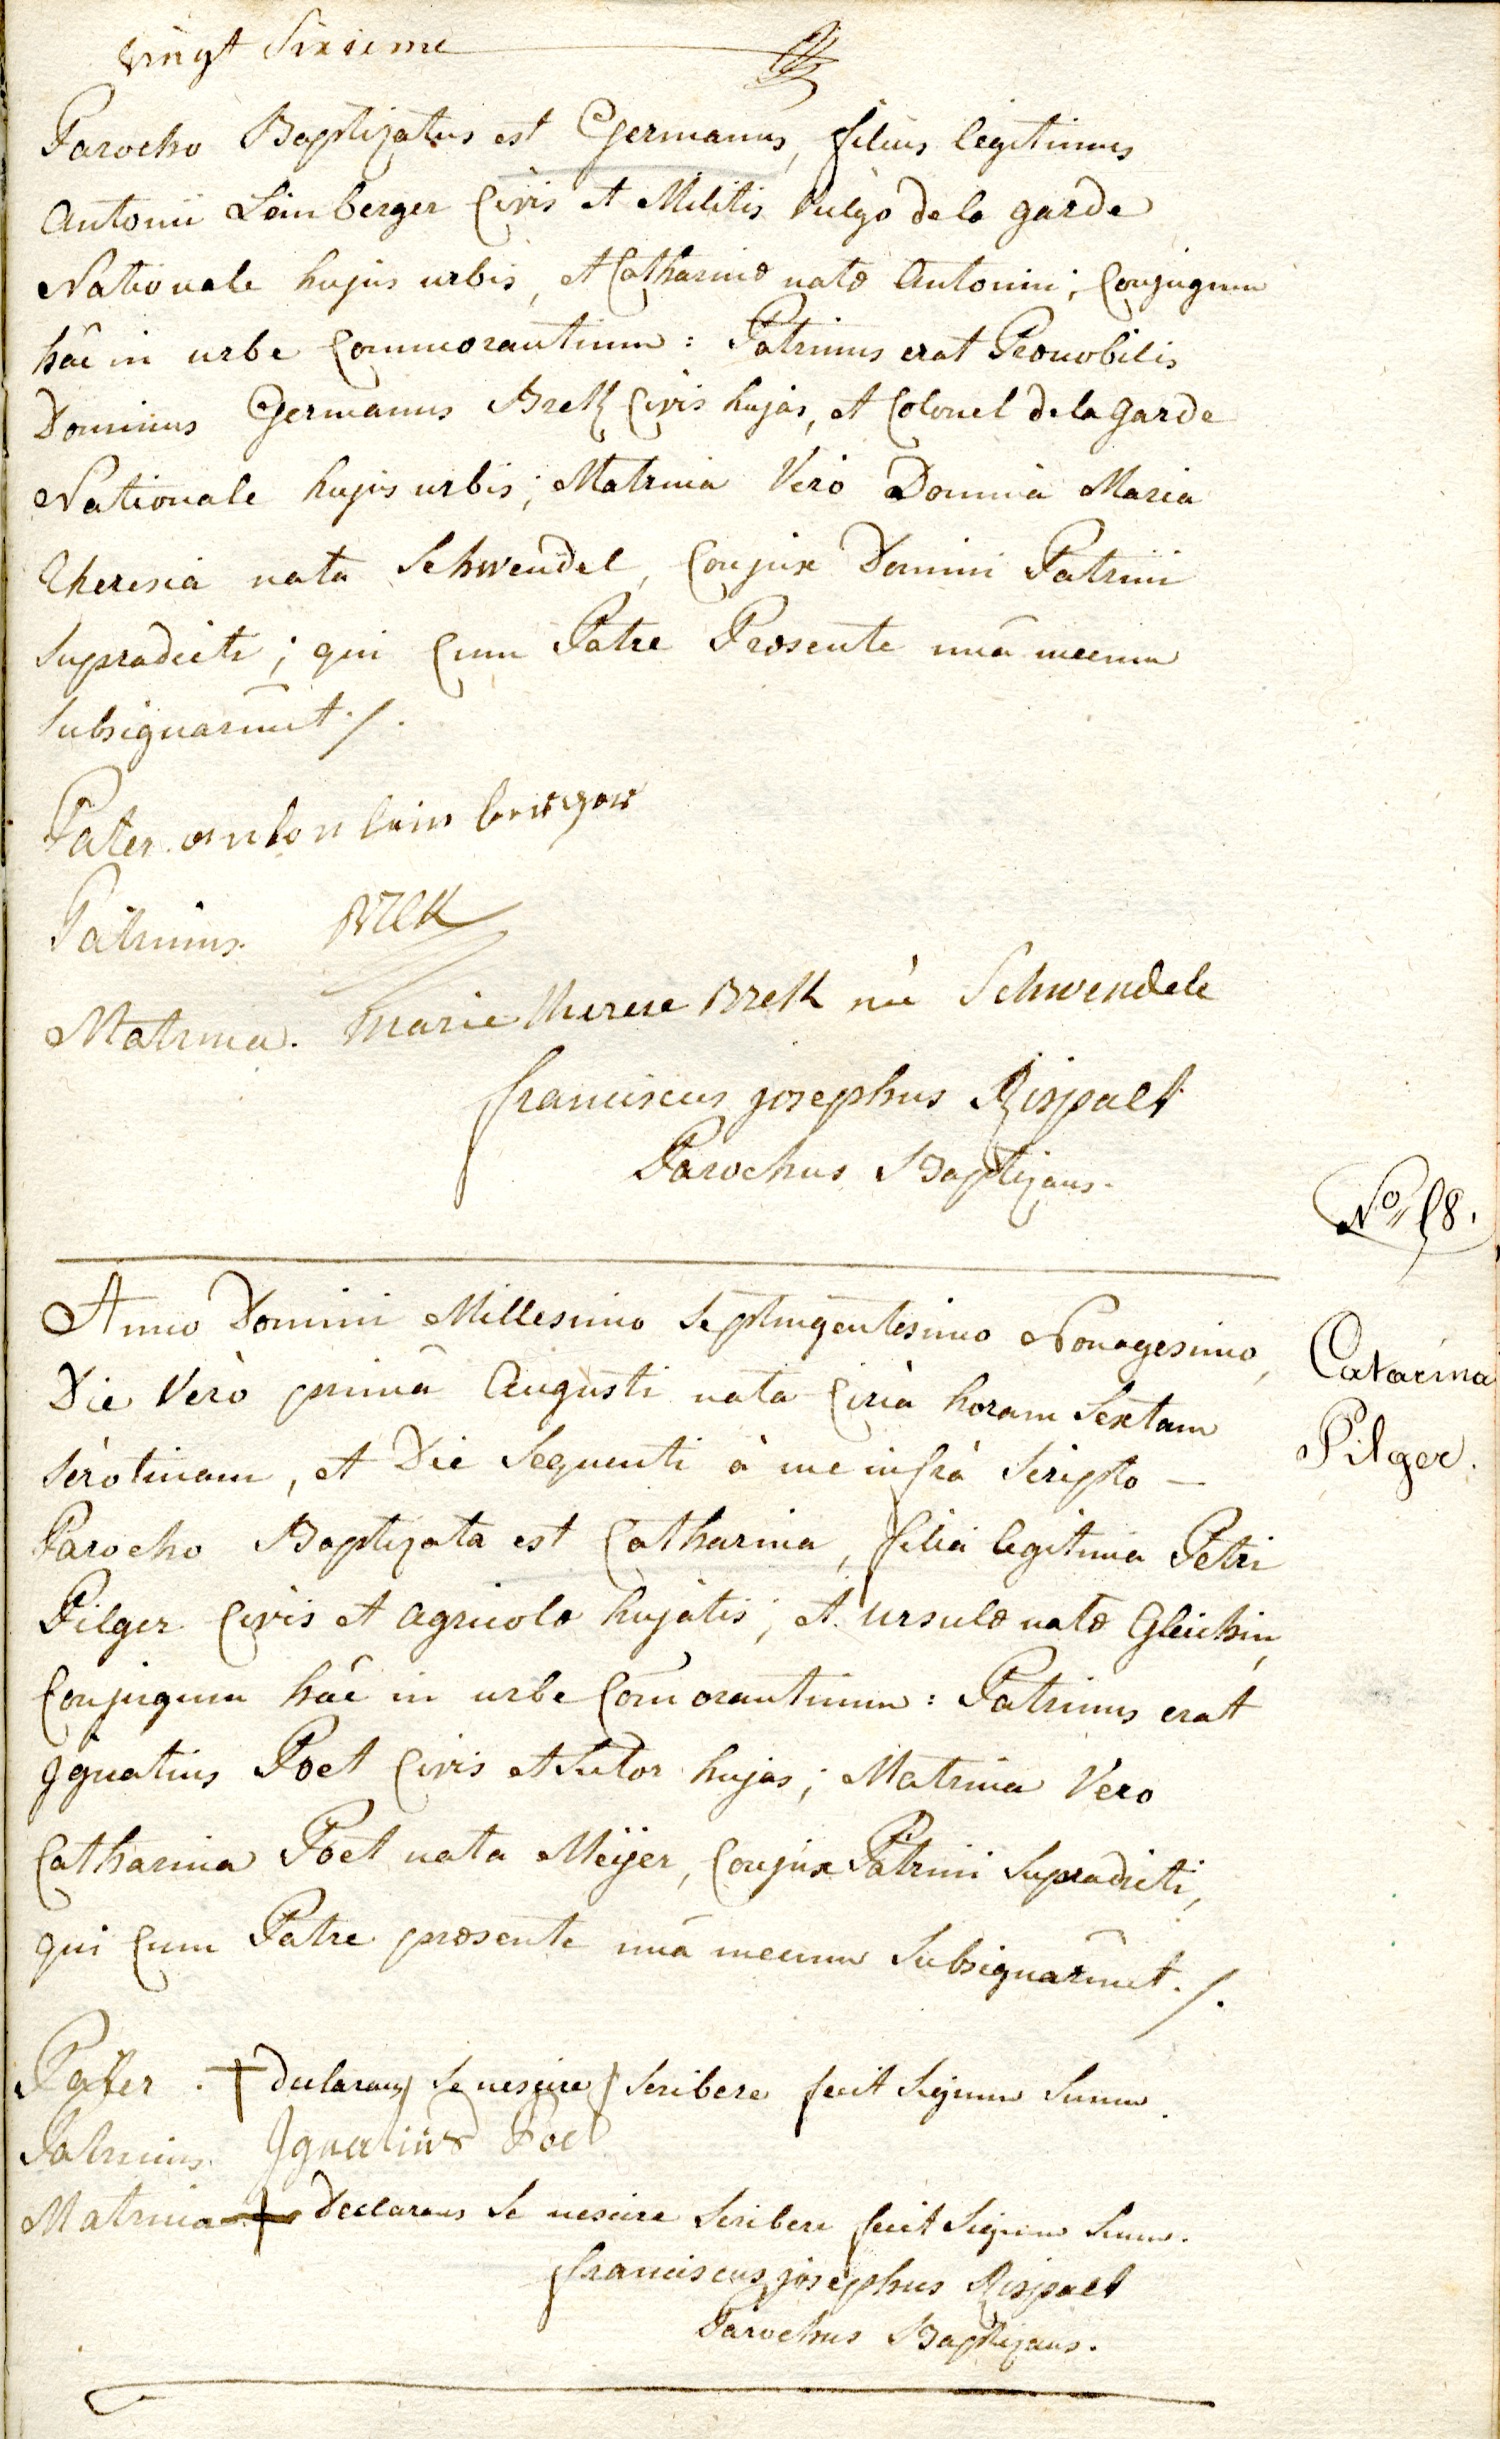 vingt Sixieme
Parocho Baptizatus est Germanus, filius legitimus
Antonii Leinberger Civis et Militis vulgo de la garde
Nationale hujus urbis, et Catharinæ natæ Antonin; Conjugum
hâc in urbe Commorantium : Patrinus erat Prænobilis
Dominus Germanus Bretz Civis hujas, et Colonel de la garde
Nationale hujus urbis; Matrina Verò Domina Maria
Theresia nata Schwendel, Conjux Domini Patrini
supradicti ; qui Cum Patre Præsente unà mecum
subsignarunt ./.
Pater. anton lein berger
Patrinus.
Matrina. marie therese née Schwendele
franciscus josephus Rispalt
Parochus Baptizans.
Nº 58.
Anno Domini Millesimo Septingentesimo Nonagesimo,
Die Verò primâ Augusti nata Circà horam Sextam
serotinam, et Die Sequenti à me infrà Scripto —
Parocho Baptizata est Catharina, filia legitima Petri
Pilger Civis et agricolæ hujatis; et Ursulæ natæ Gleichin,
Conjugum hâc in urbe Com̄orantium : Patrinus erat
Ignatius Poet Civis et Sutor hujas; Matrina Vero
Catharina Poet nata Meÿer, Conjux Patrini Supradicti,
qui Cum Patre præsente unà mecum Subsignarunt ./.
Catarina
Pilger.
Pater . † Declarans se nescire scribere fecit Signum Suum.
Patrinus. Ignatius Poet
Matrina † Declarans se nescire scribere fecit Signum Suum.
franciscus josephus Rispalt
Parochus Baptizans.